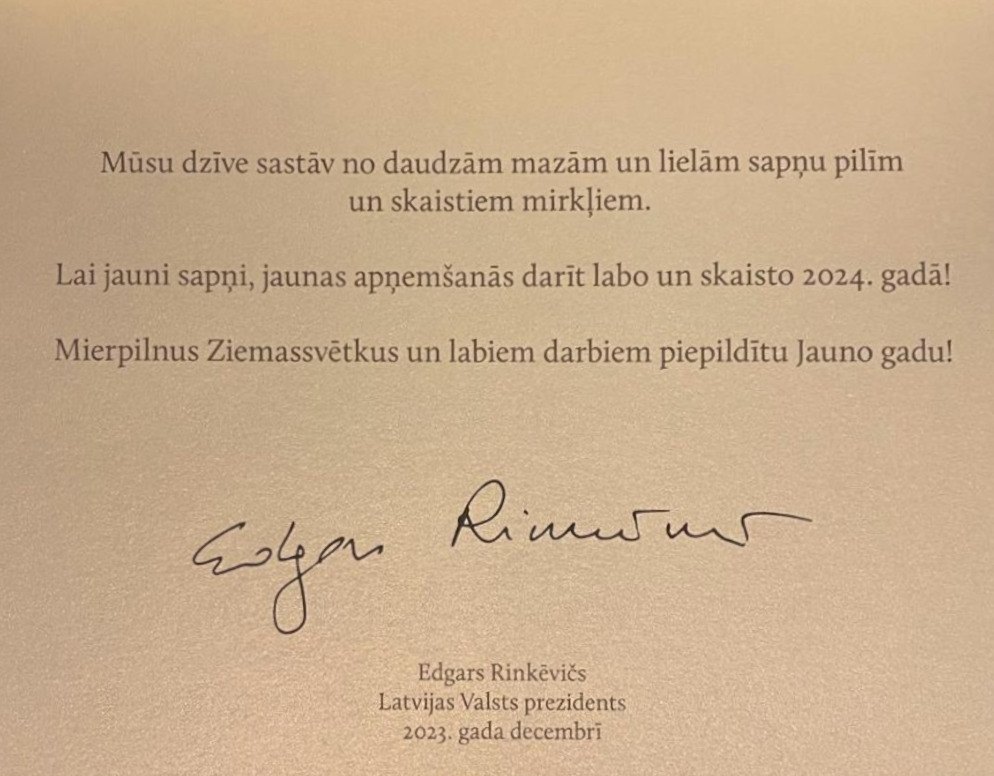 Mūsu dzīve sastāv no daudzām mazām un lielām sapņu pilīm
un skaistiem mirkļiem.
Lai jauni sapņi, jaunas apņemšanās darīt labo un skaisto 2024. gadā!
Mierpilnus Ziemassvētkus un labiem darbiem piepildītu Jauno gadu!
Edgars Rinkēvičs
Edgars Rinkēvičs
Latvijas Valsts prezidents
2023. gada decembrī